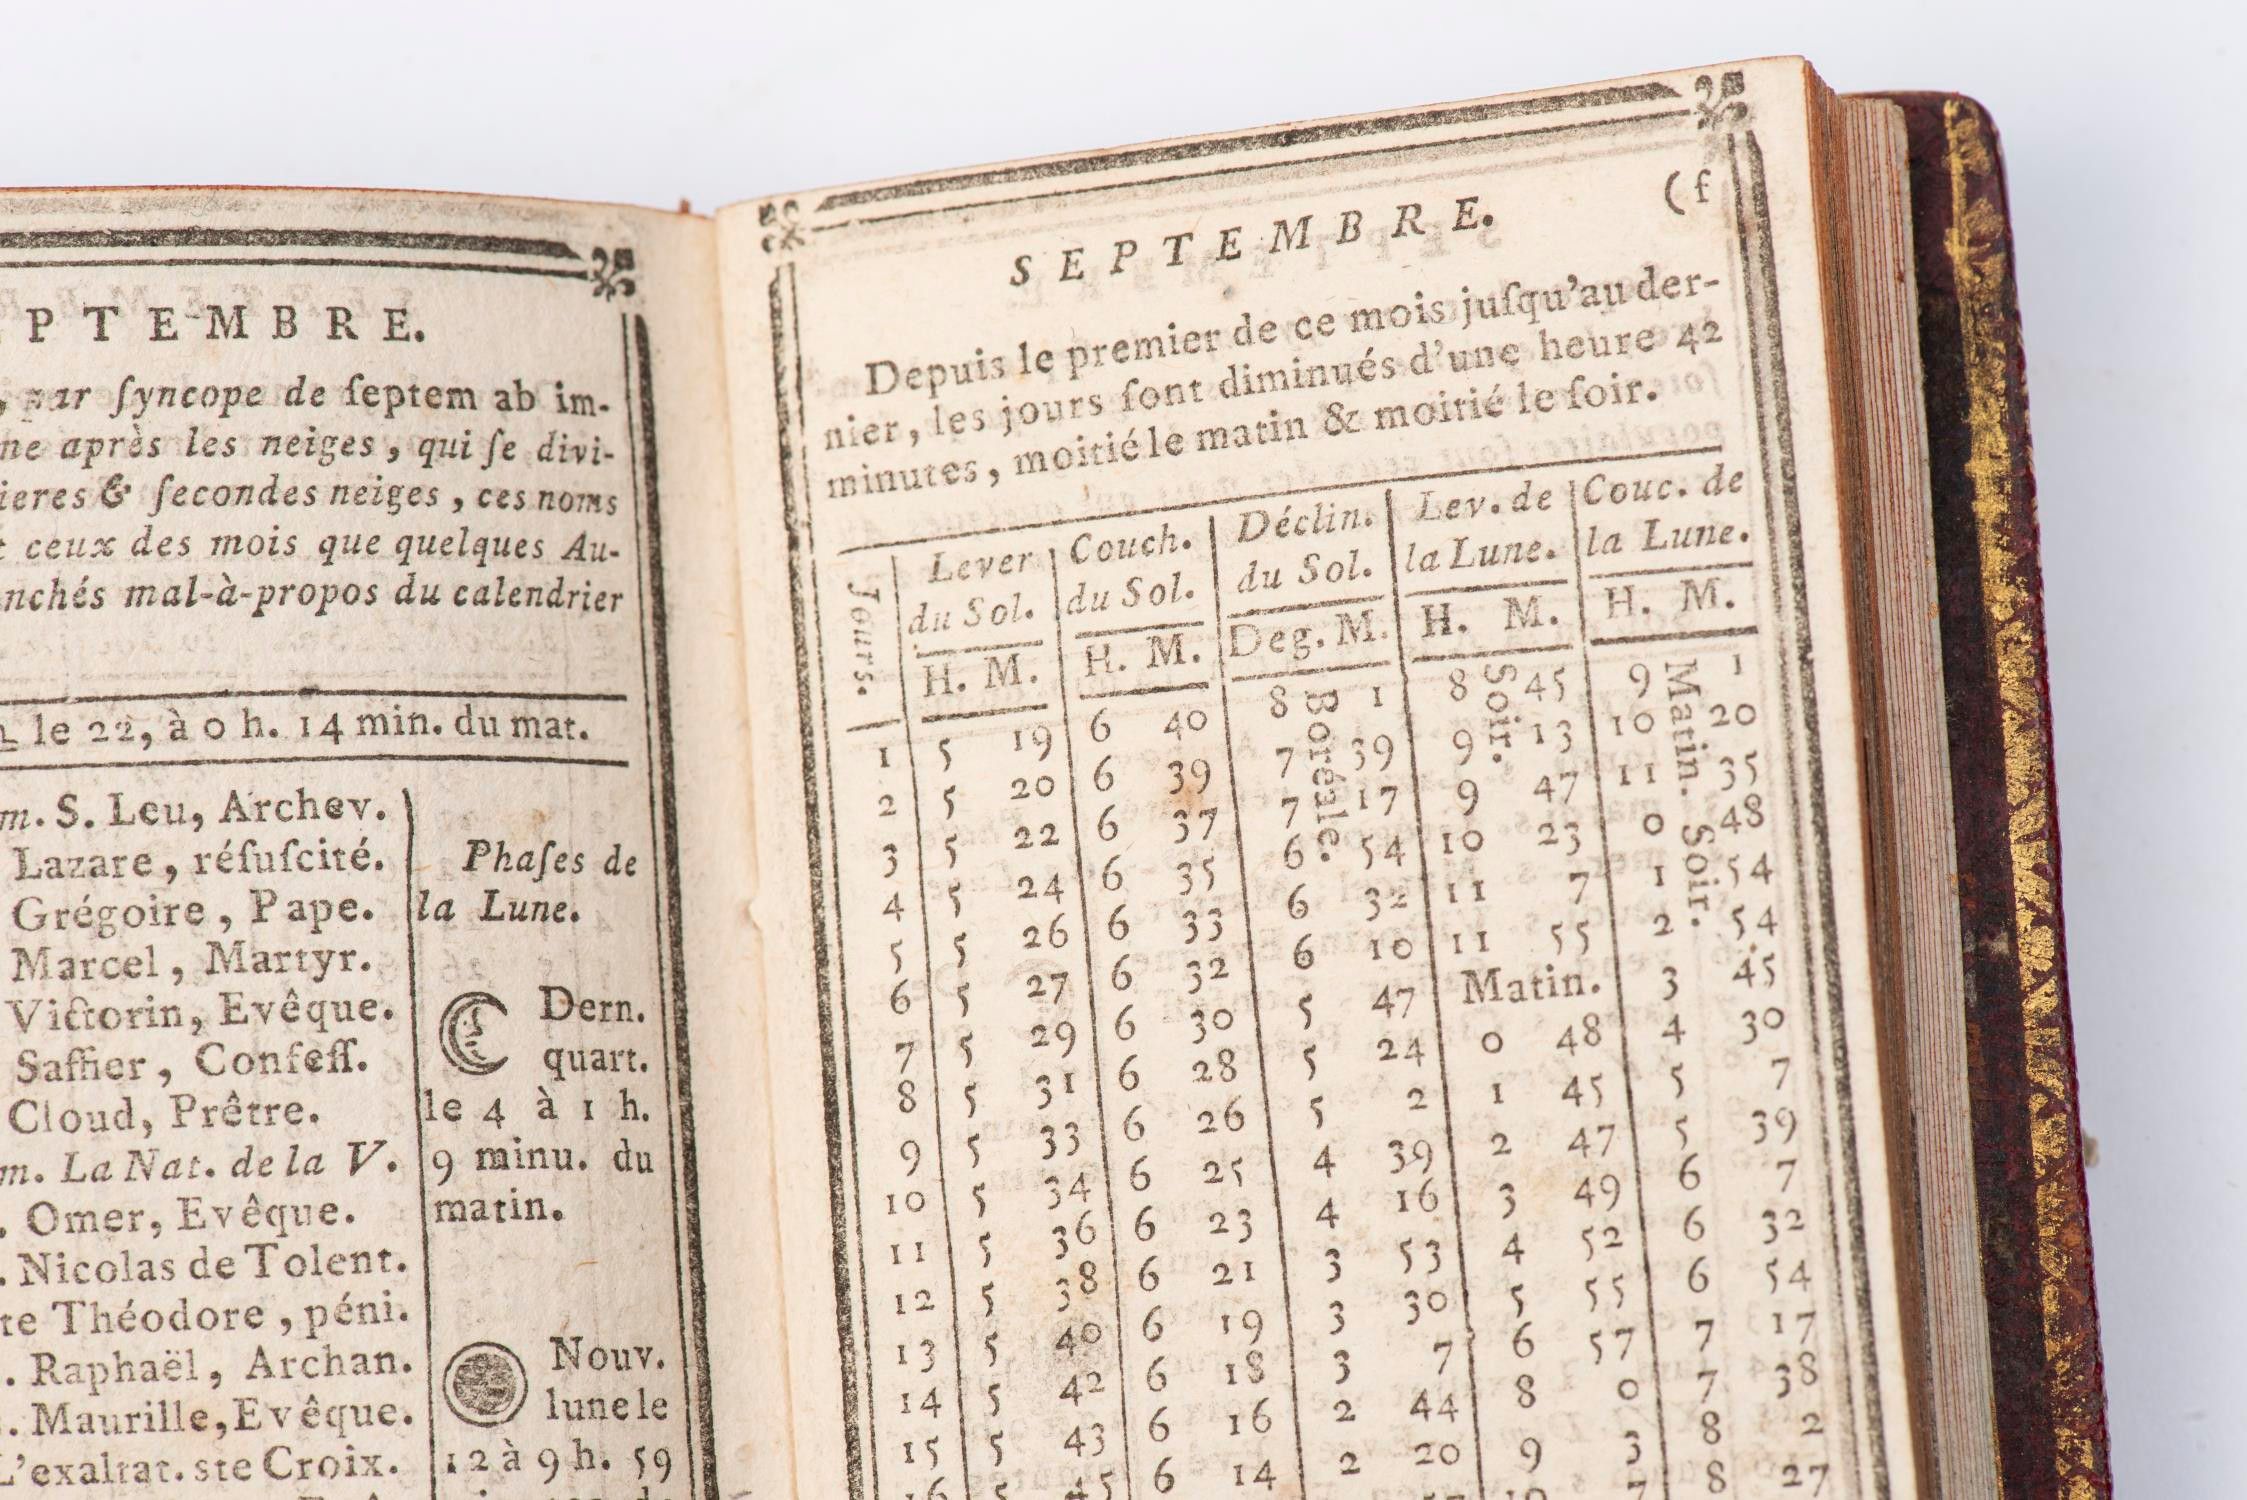 PTEMBRE.
par ſyncope de ſeptem ab im-
ne après les neiges, qui ſe divi-
ieres & ſecondes neiges, ces noms
ceux des mois que quelques Au-
nchés mal-à-propos du calendrier
le 22, à 0 h. 14 min. du mat.
m. S. Leu, Archev.
Lazare, réſuſcité.
Grégoire, Pape.
Marcel, Martyr.
Victorin, Evêque.
Saffier, Confeſſ.
Cloud, Prêtre.
m. La Nat. de la V.
. Omer, Evêque.
. Nicolas de Tolent.
te Théodore, péni.
. Raphaël, Archan.
. Maurille, Evêque.
L'exaltat. ste Croix.
Phaſes de
la Lune.
Dern.
quart.
le 4 à 1 h.
9 minu. du
matin.
Nouv.
lune le
12 à 9 h. 59
(f
SEPTEMBRE.
Depuis le premier de ce mois juſqu'au der-
nier, les jours ſont diminués d'une heure 42
minutes, moitié le matin & moitié le ſoir.
Jours. Lever du Sol. Couch. du Sol. Déclin. du Sol. Lev. de la Lune. Couc. de la Lune.
H. M. H. M. Deg. M. H. M. H. M.
Boréale. Soir. Matin. Soir.
1 5 19 6 40 8 1 8 45 9 1
2 5 20 6 39 7 39 9 13 10 20
3 5 22 6 37 7 17 9 47 11 35
4 5 24 6 35 6 54 10 23 0 48
5 5 26 6 33 6 32 11 7 1 54
6 5 27 6 32 6 10 11 55 2 54
7 5 29 6 30 5 47 Matin. 3 45
8 5 31 6 28 5 24 0 48 4 30
9 5 33 6 26 5 2 1 45 5 7
10 5 34 6 25 4 39 2 47 5 39
11 5 36 6 23 4 16 3 49 6 7
12 5 38 6 21 3 53 4 52 6 32
13 5 40 6 19 3 30 5 55 6 54
14 5 42 6 18 3 7 6 57 7 17
15 5 43 6 16 2 44 8 0 7 38
16 5 45 6 14 2 20 9 3 8 2
10 7 8 27